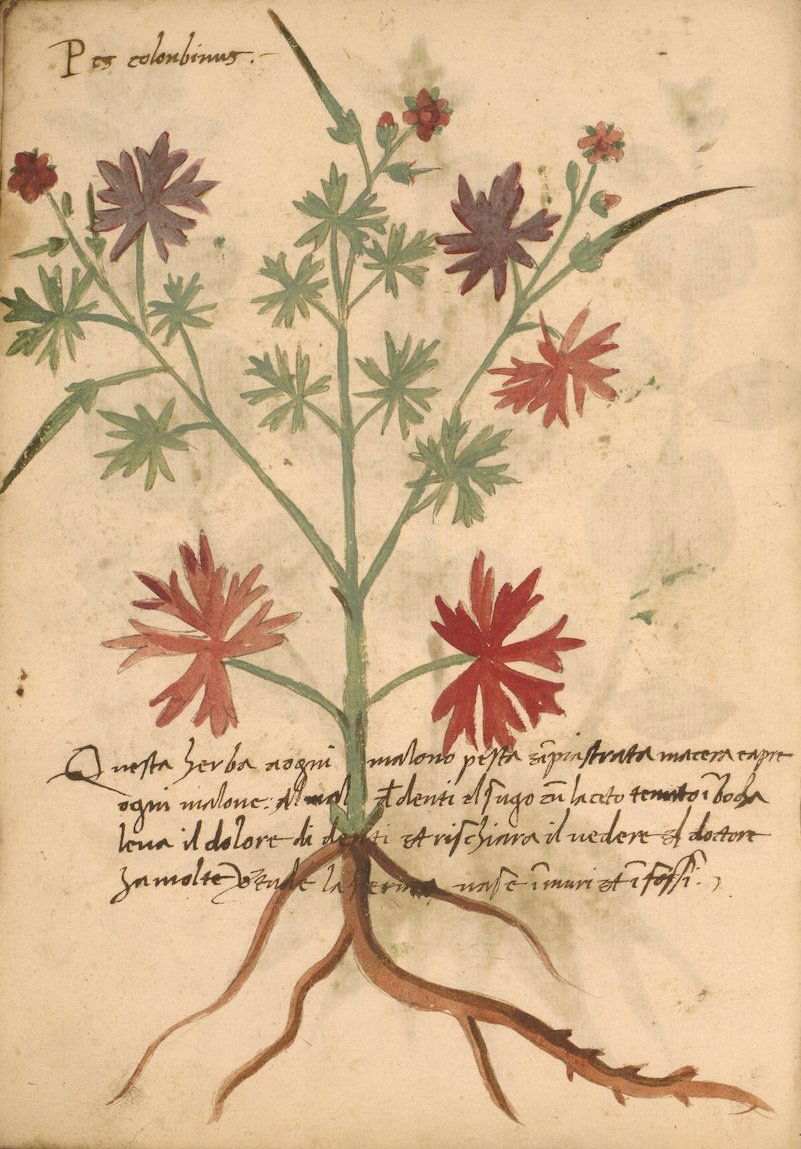 Pes colonbinus.
Questa herba aogni malono pesta īpiastrata macera e apre
ogni malone: Al mal d denti el sugo cū laceto tenuto ī bocha
leva il dolore di denti et rischiara il vedere
ha molte nase ī muri et ī fossi.